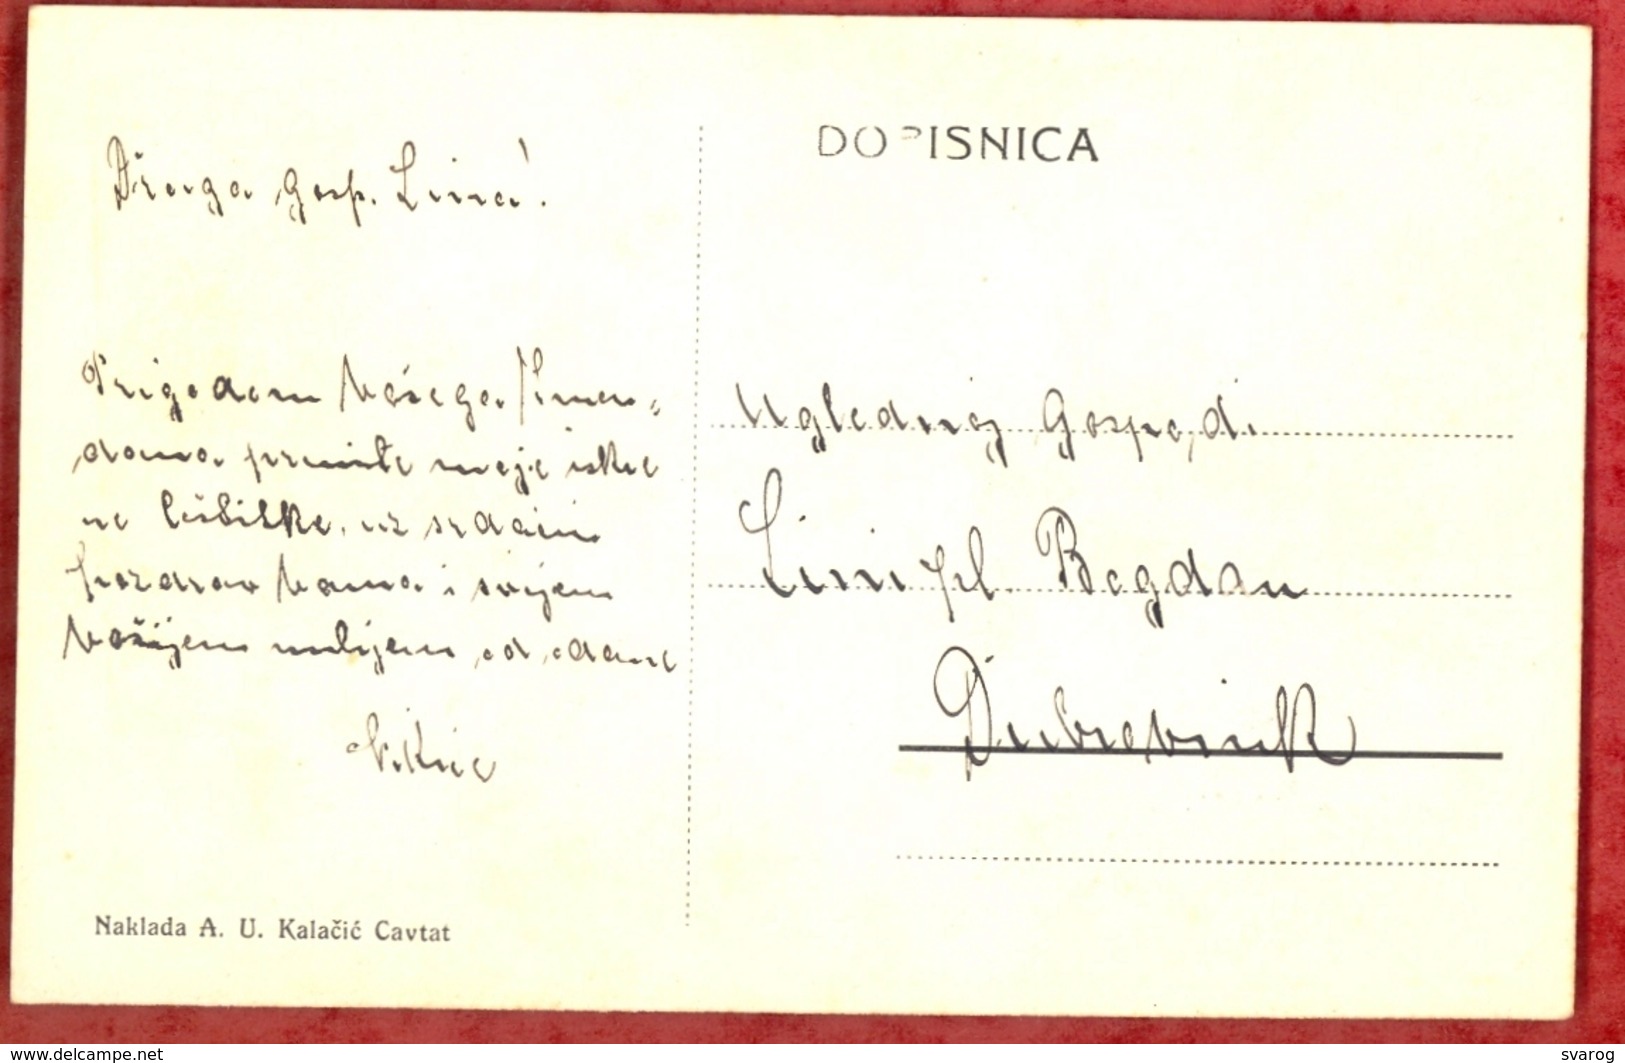 DOPISNICA
Draga gosp. Lina!
Prigodom Vašega Imen-
dana primite moje iskre
ne čestitke uz srdačni
pozdrav Vama i svijem
Vašijem milijem od odane
Uglednoj Gospođi
Lini pl. Bogdan
Dubrovnik
Naklada A. U. Kalačić Cavtat
www.delcampe.net
svarog